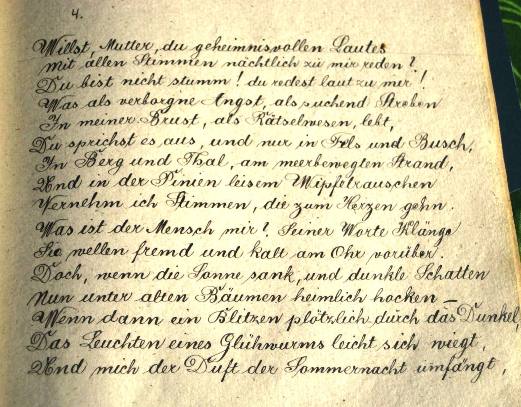 4.
Willst, Mutter, du geheimnisvollen Lautes
Mit allen Stimmen nächtlich zu mir reden?
Du bist nicht stumm! du redest laut zu mir!
Was als verborgne Angst, als suchend Streben
In meiner Brust, als Rätselwesen, lebt,
Du sprichst es aus, und nur in Fels und Busch,
In Berg und Thal, am meerbewegten Strand,
Und in der Pinien leisem Wipfelrauschen
Vernehm ich Stimmen, die zum Herzen gehn.
Was ist der Mensch mir? Seiner Worte Klänge
Sie wellen fremd und kalt am Ohr vorüber.
Doch, wenn die Sonne sank, und dunkle Schatten
Nun unter alten Bäumen heimlich hocken –
Wenn dann ein Blitzen plötzlich durch das Dunkel,
Das Leuchten eines Glühwurms leicht sich wiegt,
Und mich der Duft der Sommernacht umfängt,